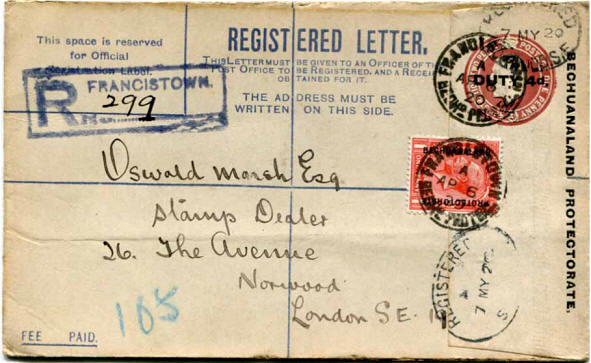 This space is reserved
for Official
Registration Label.
REGISTERED LETTER.
THIS LETTER MUST BE GIVEN TO AN OFFICER OF THE
POST OFFICE TO BE REGISTERED, AND A RECEIPT
OBTAINED FOR IT.
THE ADDRESS MUST BE
WRITTEN ON THIS SIDE.
R FRANCISTOWN.
299
REGISTERED
7 MY 20
DUTY 4d
FRANCISTOWN
AP 6
PROTECTORATE
BECHUANALAND PROTECTORATE.
Oswald Marsh Esq
Stamp Dealer
26. The Avenue
Norwood
London S.E. 19
165
REGISTERED
7 MY 20
FEE PAID.